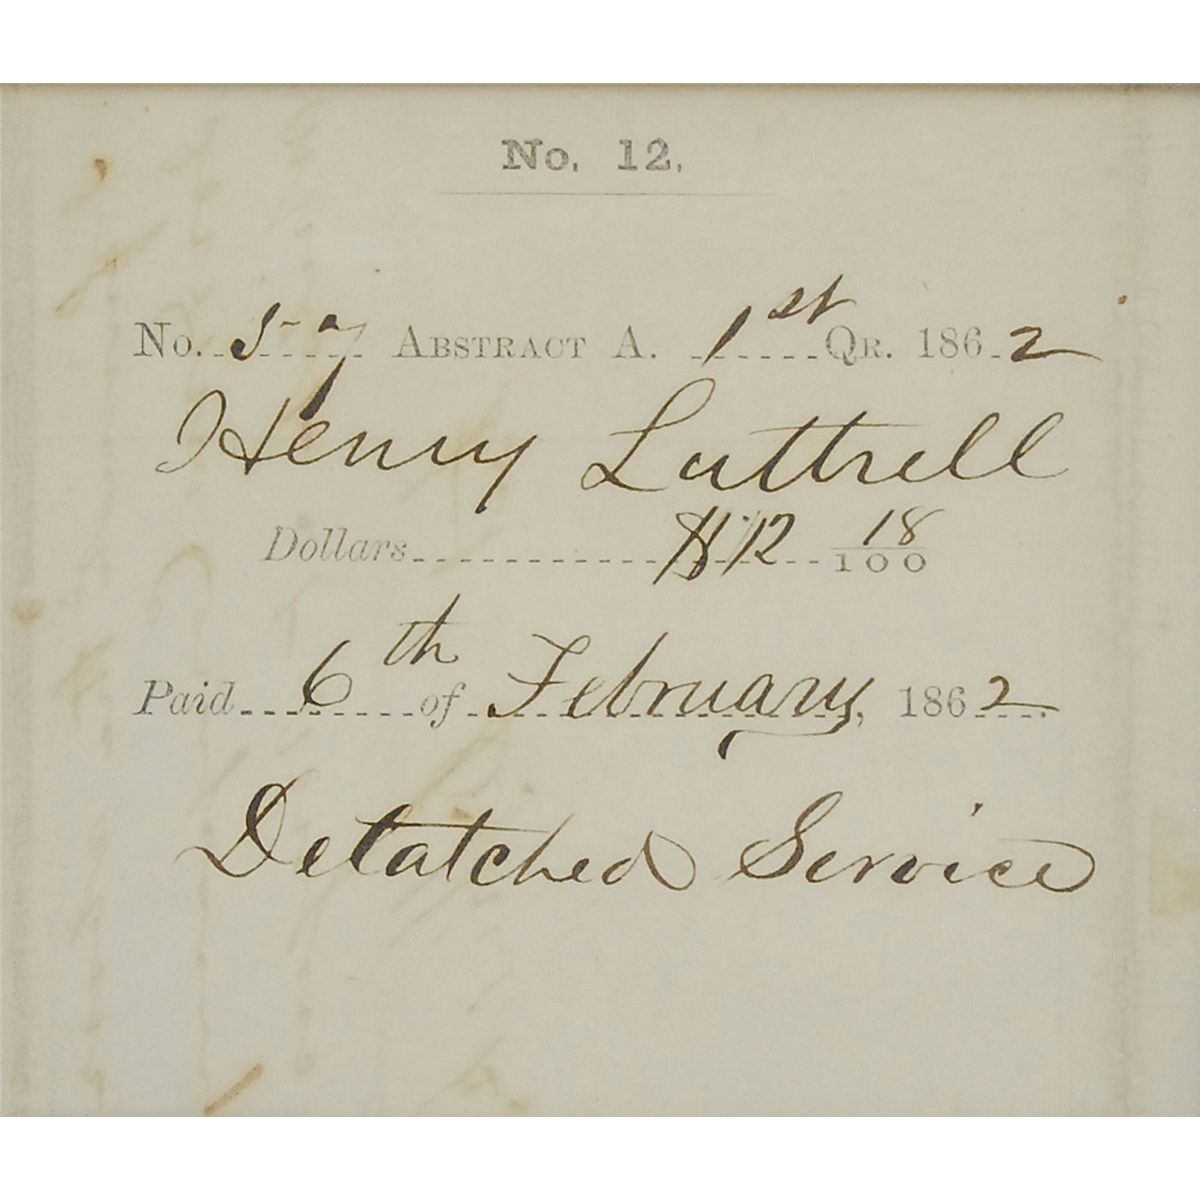 No. 12.
No. 57 Abstract A. 1st Qr. 1862
Henry Luttrell
Dollars $12 18/100
Paid 6th of February, 1862.
Detatched Service